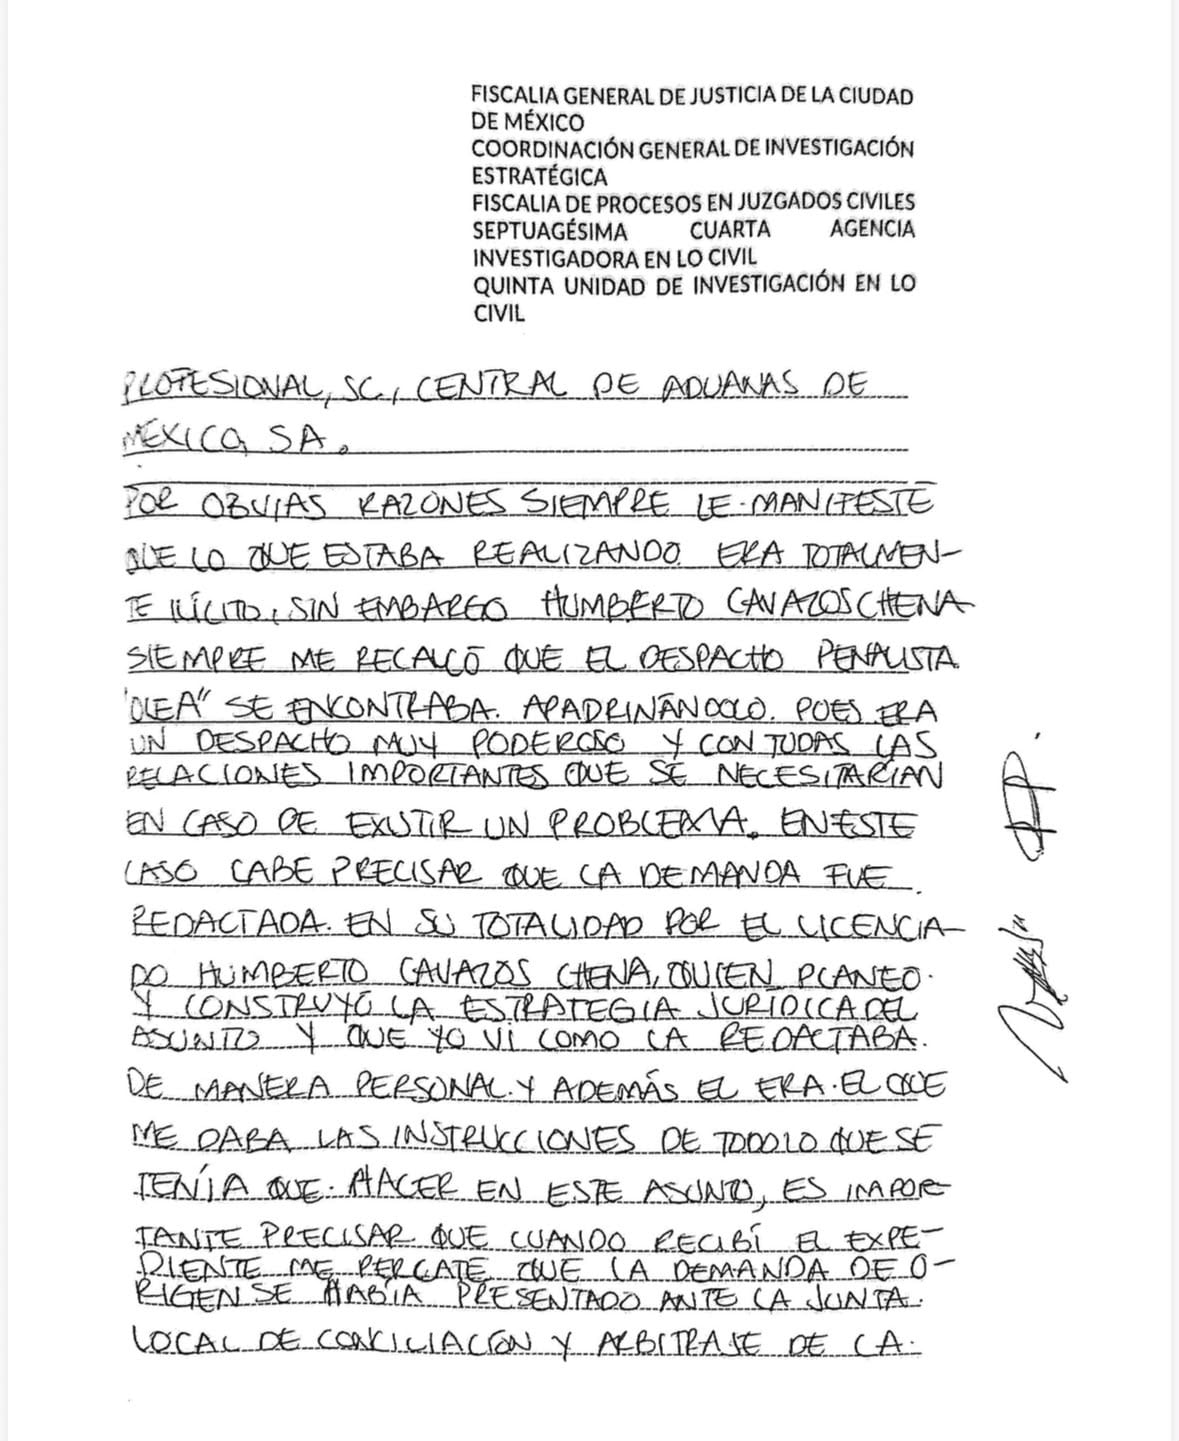 FISCALIA GENERAL DE JUSTICIA DE LA CIUDAD
DE MÉXICO
COORDINACIÓN GENERAL DE INVESTIGACIÓN
ESTRATÉGICA
FISCALIA DE PROCESOS EN JUZGADOS CIVILES
SEPTUAGÉSIMA CUARTA AGENCIA
INVESTIGADORA EN LO CIVIL
QUINTA UNIDAD DE INVESTIGACIÓN EN LO
CIVIL
PROFESIONAL, SC., CENTRAL DE ADUANAS DE
MÉXICO, SA.
POR OBVIAS RAZONES SIEMPRE LE MANIFESTÉ
QUE LO QUE ESTABA REALIZANDO ERA TOTALMEN-
TE ILÍCITO, SIN EMBARGO HUMBERTO CAVAZOS CHENA
SIEMPRE ME RECALCÓ QUE EL DESPACHO PENALISTA
"OLEA" SE ENCONTRABA APADRINÁNDOLO. PUES ERA
UN DESPACHO MUY PODEROSO Y CON TODAS LAS
RELACIONES IMPORTANTES QUE SE NECESITARÍAN
EN CASO DE EXISTIR UN PROBLEMA. EN ESTE
CASO CABE PRECISAR QUE LA DEMANDA FUE
REDACTADA EN SU TOTALIDAD POR EL LICENCIA-
DO HUMBERTO CAVAZOS CHENA, QUIEN PLANEO
Y CONSTRUYÓ LA ESTRATEGIA JURIDICA DEL
ASUNTO Y QUE YO VI COMO LA REDACTABA
DE MANERA PERSONAL Y ADEMÁS EL ERA EL QUE
ME DABA LAS INSTRUCCIONES DE TODO LO QUE SE
TENÍA QUE HACER EN ESTE ASUNTO, ES IMPOR-
TANTE PRECISAR QUE CUANDO RECIBÍ EL EXPE-
DIENTE ME PERCATÉ QUE LA DEMANDA DE O-
RIGEN SE HABÍA PRESENTADO ANTE LA JUNTA
LOCAL DE CONCILIACIÓN Y ARBITRAJE DE LA